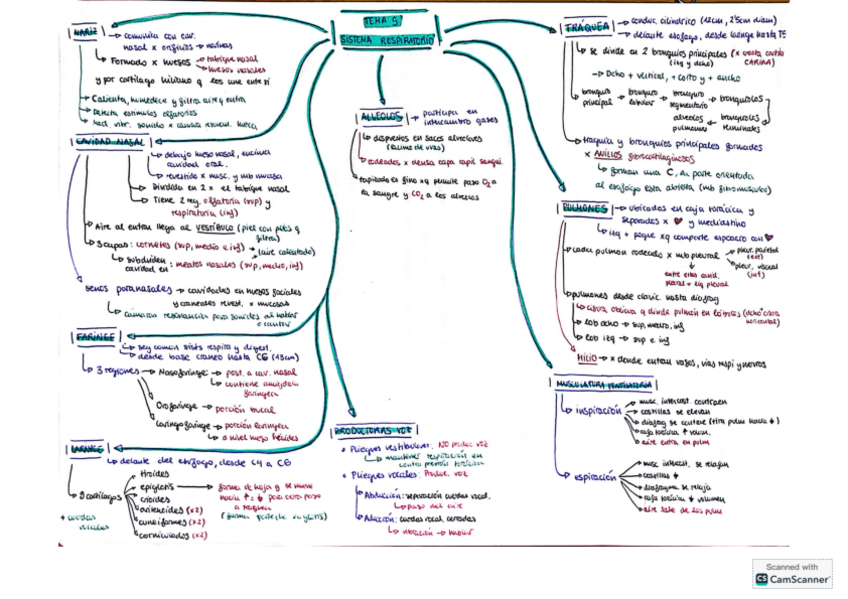 TEMA 9
SISTEMA RESPIRATORIO
NARIZ
→ comunica con cav.
nasal x orificios → narinas
Formado x huesos → tabique nasal
→ huesos nasales
y por cartílago hialino q los une entre sí
Calienta, humedece y filtra aire q entra
Detecta estímulos olfatorios
CAVIDAD NASAL
debajo hueso nasal, encima
cavidad oral.
revestido x musc. y mb mucosa
Dividida en 2 x el tabique nasal
Tiene 2 reg. olfatoria (sup) y
respiratoria (inf)
Aire al entrar llega al VESTÍBULO (piel con pelos q
filtra)
3 capas: cornetes (sup, medio e inf) → (aire calentado)
subdividen
cavidad en: meatos nasales (sup, medio, inf)
senos paranasales → cavidades en huesos faciales
y craneales revest. x mucosas
cámaras resonancia para sonidos al hablar
o cantar
FARINGE
seg común sists respira y digest.
desde base cráneo hasta C6 (13cm)
3 regiones → Nasofaringe → post. a cav. nasal
contiene amígdala
faríngea
Orofaringe → porción bucal
Laringofaringe → porción laríngea
a nivel hueso hioides
LARINGE
delante del esófago, desde C4 a C6
9 cartílagos
tiroides
epiglotis → forma de hoja y se mueve
hacia ↑ o ↓ para cerrar paso
a tráquea
cricoides
aritenoides (x2)
cuneiformes (x2)
corniculados (x2)
+ cuerdas
vocales
ALVEOLOS → participa en
intercambio gases
dispuestos en sacos alveolares
(racimo de uvas)
rodeados x densa capa capil sanguí.
tapizado es fino xq permite paso O2 a
la sangre y CO2 a los alveolos
PRODUCTORAS VOZ
• Pliegues vestibulares: NO produc voz
mantener respiración en
contra presión torácica
• Pliegues vocales: Produc. voz
Abducción: separación cuerdas vocal.
paso del aire
Aducción: cuerdas vocal. cerradas
vibración → hablar
TRÁQUEA → conduc. cilíndrico (12cm, 2'5cm diám)
→ delante esófago, desde laringe hasta T5
se divide en 2 bronquios principales
(izq y dcho)
CARINA)
→ Dcho + vertical, + corto y + ancho
bronquio principal → bronquio lobular → bronquio segmentario → bronquiolos
alveolos pulmonares ← bronquiolos terminales
tráquea y bronquios principales formados
x ANILLOS fibrocartilaginosos
forman una C, la parte orientada
al esófago está abierta (mb fibromuscular)
PULMONES → ubicados en caja torácica y
separados x ♥ y mediastino
izq + peque xq comparte espacio con ♥
cada pulmón rodeado x mb pleural → pleur. parietal
(ext)
→ pleur. visceral
(int)
entre ellas cavid.
pleural + líq pleural
pulmones desde clavíc. hasta diafrag
cisura oblicua q divide pulmón en lóbulos (dcho + cisura
horizontal)
lób dcho → sup, medio, inf
lób izq → sup e inf
HILIO → x donde entran vasos, vías respi y nervios
MUSCULATURA VENTILATORIA
inspiración
musc. intercost. contraen
costillas se elevan
diafrag se contrae (tira pulm hacia ↓)
caja torácica ↑ volum.
aire entra en pulm
espiración
musc intercost. se relajan
costillas ↓
diafragma se relaja
caja torácica ↓ volumen
aire sale de los pulm
Scanned with
CS CamScanner